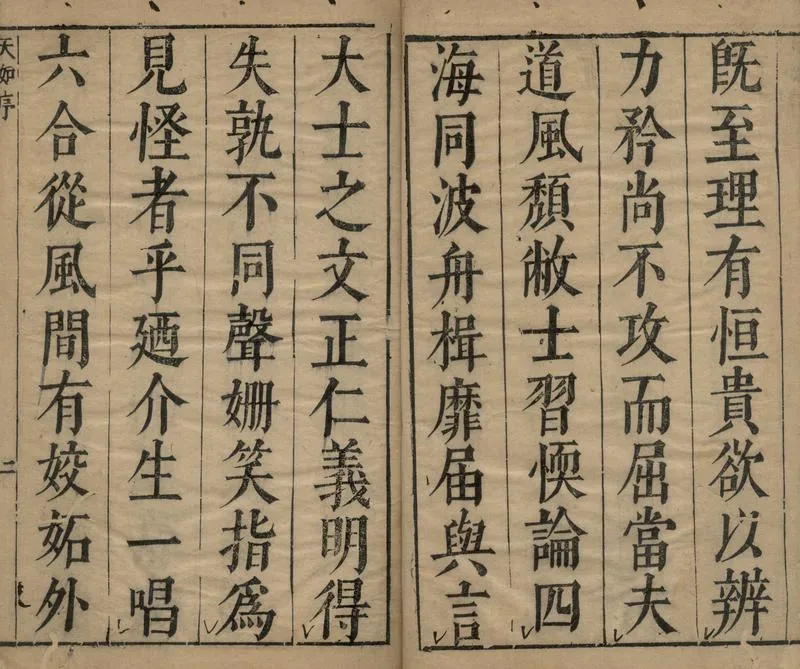 既至理有恒貴欲以辨
力矜尚不攻而屈當夫
道風頹敝士習愞論四
海同波舟楫靡届與言
大士之文正仁義明得
失孰不同聲姍笑指為
見怪者乎廼介生一唱
六合從風間有姣妬外
天如序
二